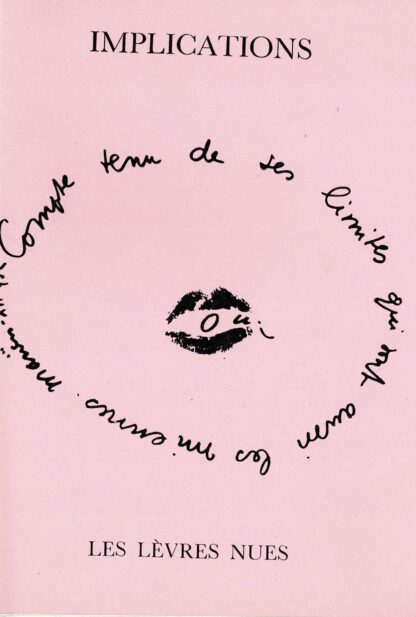 IMPLICATIONS
Compte tenu de ses limites qui sont aussi les miennes.
Oui
LES LÈVRES NUES